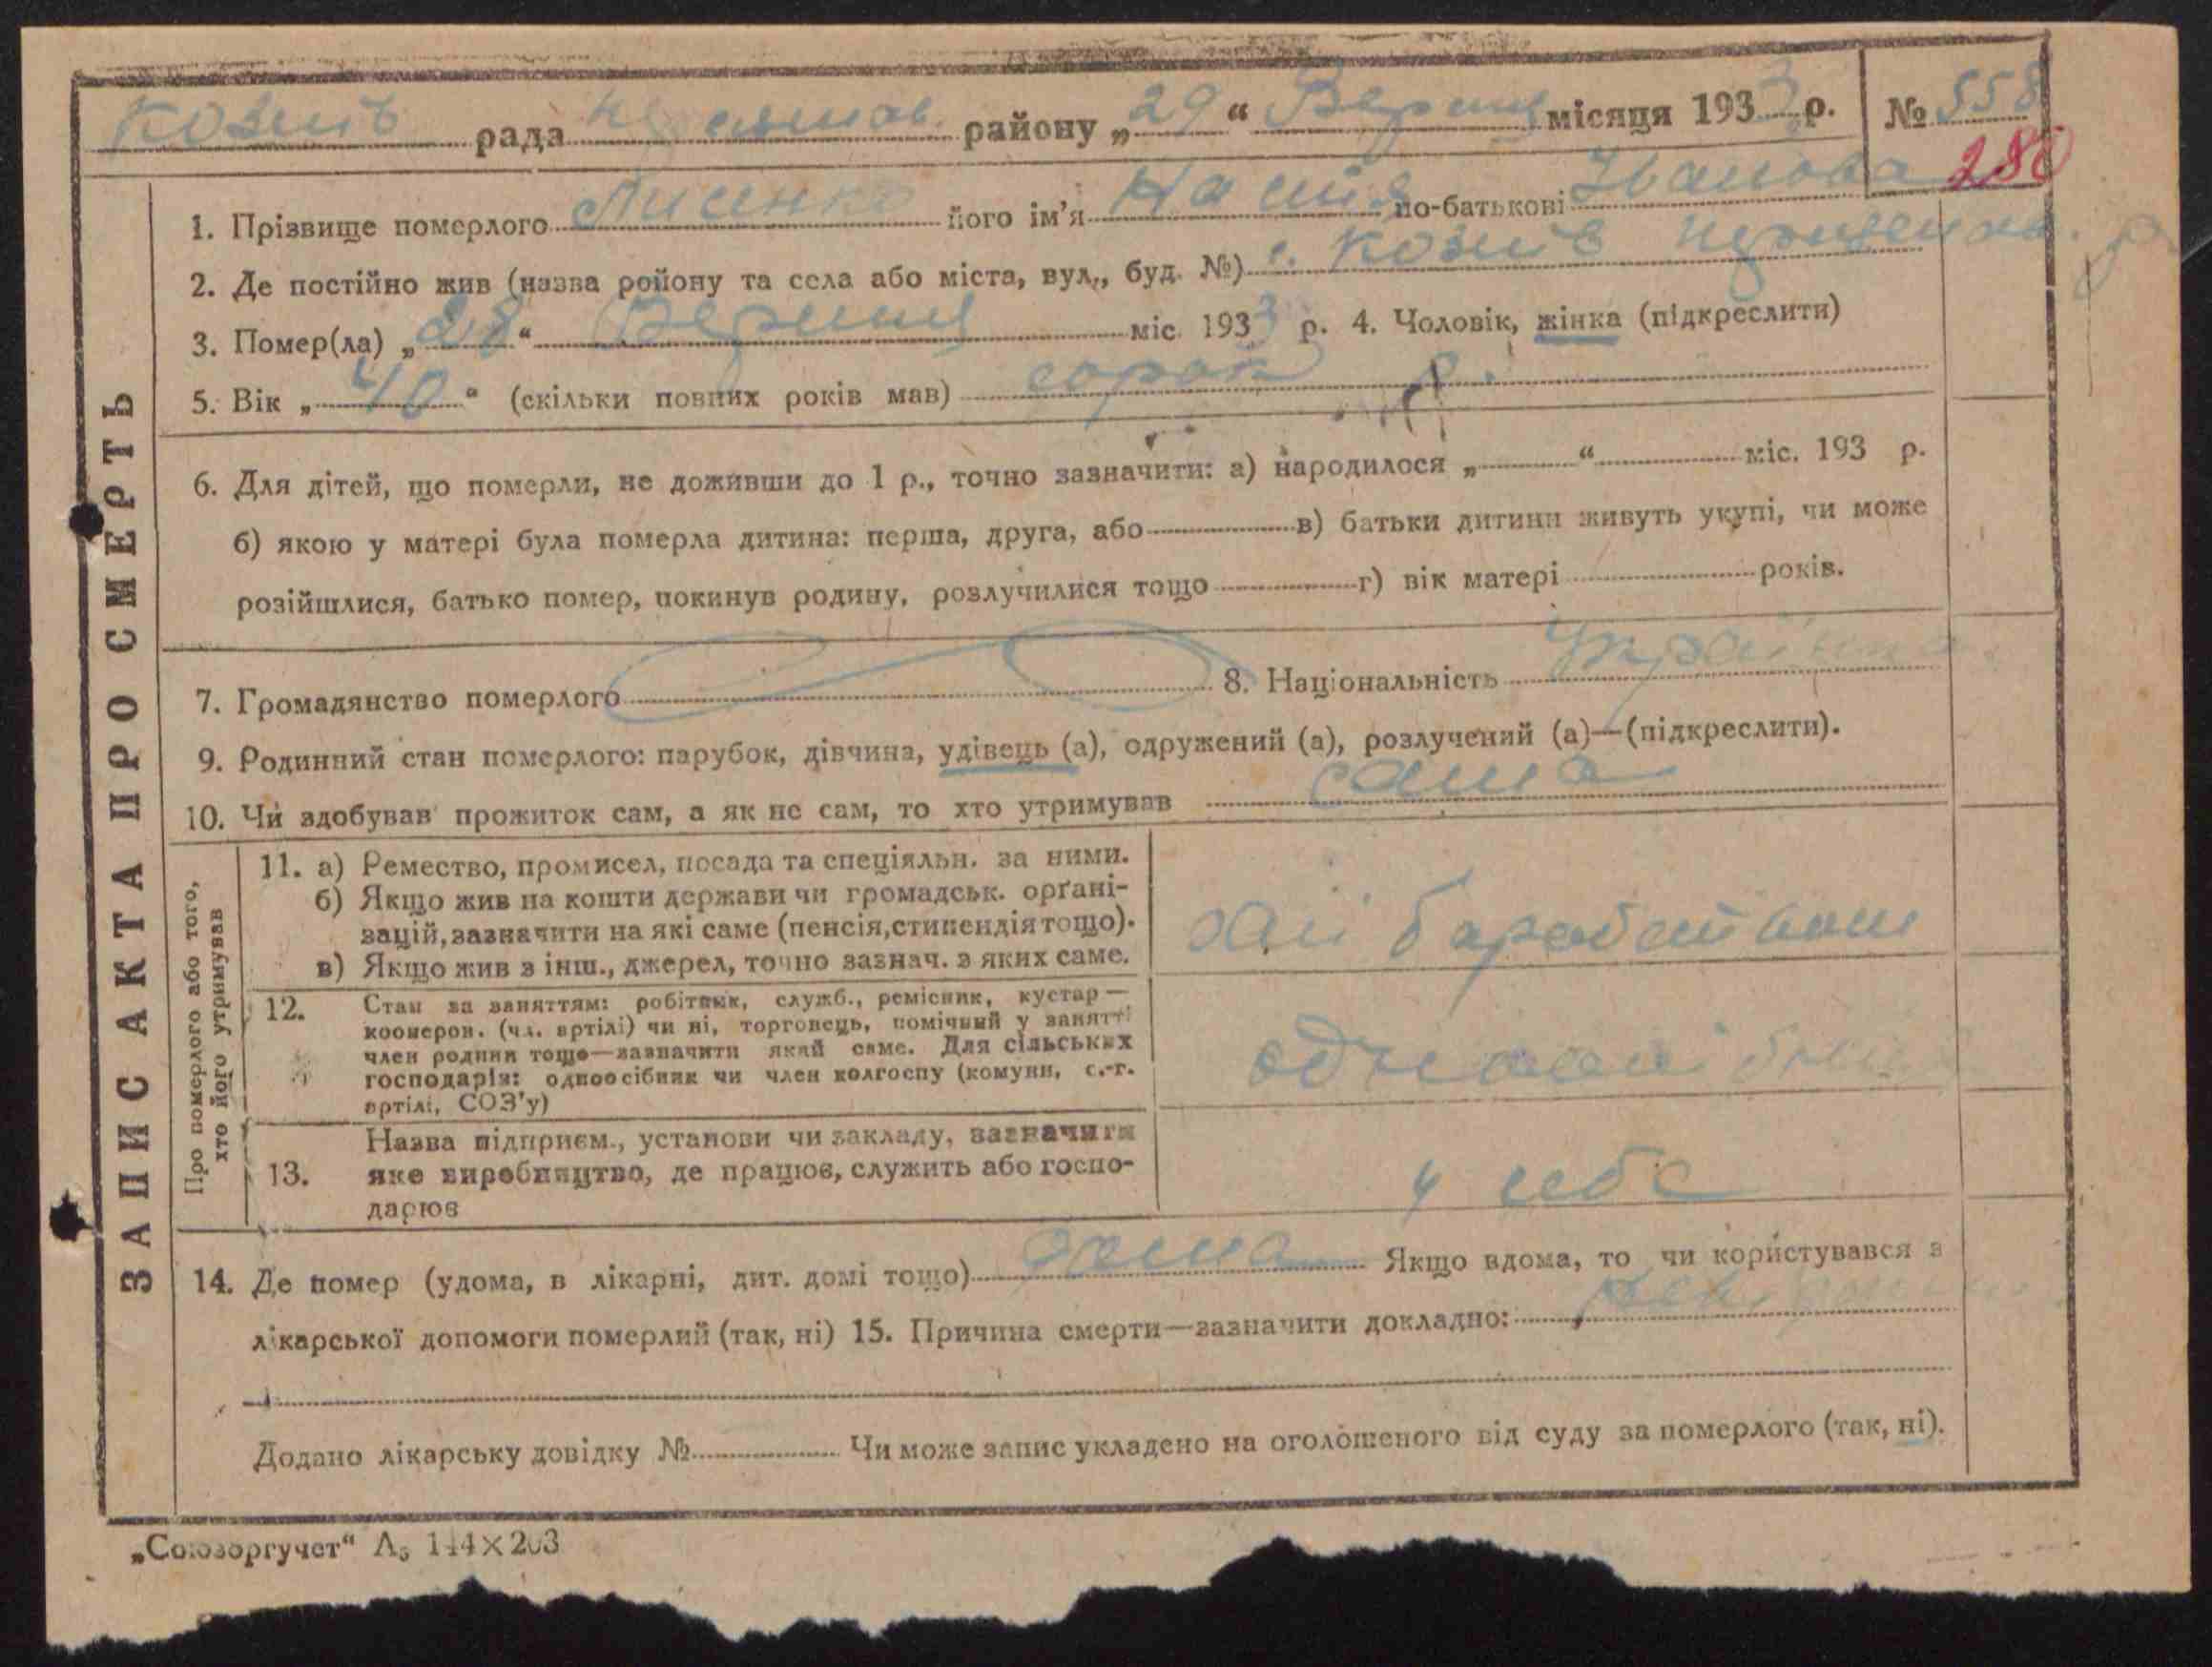 Козіїв рада району „29“ Вересня місяця 1933 р. № 558
280
1. Прізвище померлого Лисенко його ім'я Настя по-батькові Іванова
2. Де постійно жив (назва ройону та села або міста, вул., буд. №) с. Козіїв
3. Помер(ла) „28“ Вересня міс. 1933 р. 4. Чоловік, жінка (підкреслити)
5. Вік „40“ (скільки повних років мав) сорок р.
6. Для дітей, що померли, не доживши до 1 р., точно зазначити: а) народилося „ “ міс. 193 р.
б) якою у матері була померла дитина: перша, друга, або в) батьки дитини живуть укупі, чи може
розійшлися, батько помер, покинув родину, розлучилися тощо г) вік матері років.
7. Громадянство померлого 8. Національність Українка
9. Родинний стан померлого: парубок, дівчина, удівець (а), одружений (а), розлучений (а)—(підкреслити).
10. Чи здобував прожиток сам, а як не сам, то хто утримував сама
ЗАПИС АКТА ПРО СМЕРТЬ
Про померлого або того,
хто його утримував
11. а) Ремество, промисел, посада та спеціяльн. за ними.
б) Якщо жив на кошти держави чи громадськ. орґані-
зацій, зазначити на які саме (пенсія, стипендія тощо).
в) Якщо жив з інш., джерел, точно зазнач. з яких саме.
12. Стан за заняттям: робітник, служб., ремісник, кустар—
кооперов. (чл. артілі) чи ні, торговець, помічний у занятті
член родини тощо—зазначити який саме. Для сільських
господарів: одноосібник чи член колгоспу (комуни, с.-г.
артілі, СОЗ'у)
13. Назва підприєм., установи чи закладу, зазначити
яке виробництво, де працює, служить або госпо-
дарює
у себе
14. Де помер (удома, в лікарні, дит. домі тощо) дома Якщо вдома, то чи користувався з
лікарської допомоги померлий (так, ні) 15. Причина смерти—зазначити докладно:
Додано лікарську довідку № Чи може запис укладено на оголошеного від суду за померлого (так, ні).
„Союзоргучет“ А₅ 144×203